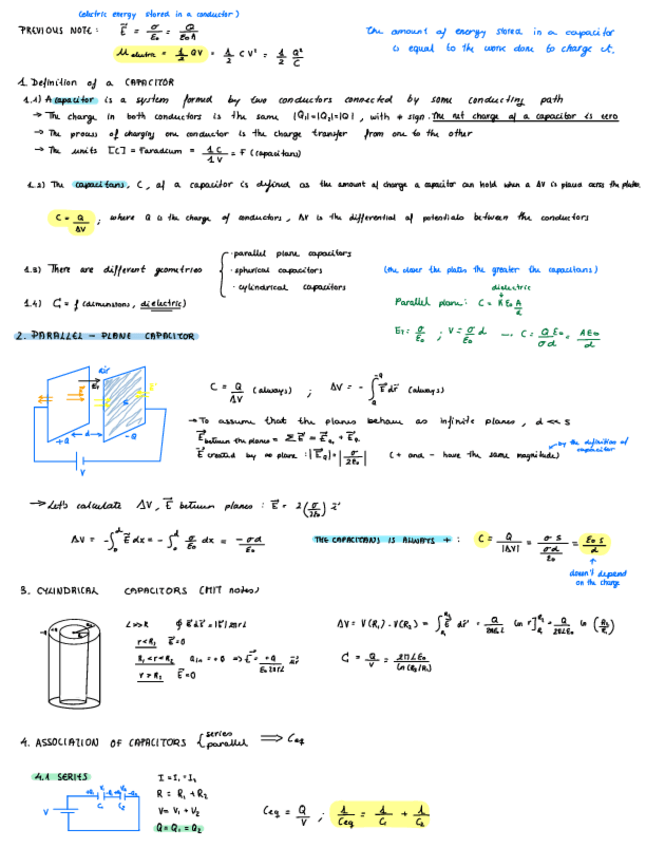 (electric energy stored in a conductor)
PREVIOUS NOTE: E⃗ = σ/ε₀ = Q/(ε₀A)
U electric = 1/2 QV = 1/2 CV² = 1/2 Q²/C
The amount of energy stored in a capacitor
is equal to the work done to charge it.
1. Definition of a CAPACITOR
1.1) A capacitor is a system formed by two conductors connected by some conducting path
→ The charge in both conductors is the same |Q₁|=|Q₂|=|Q|, with ≠ sign. The net charge of a capacitor is zero
→ The process of charging one conductor is the charge transfer from one to the other
→ The units [C] = Faradium = 1C/1V = F (capacitans)
1.2) The capacitans, C, of a capacitor is defined as the amount of charge a capacitor can hold when a ΔV is placed across the plates
C = Q/ΔV ; where Q is the charge of conductors, ΔV is the differential of potentials between the conductors
1.3) There are different geometries
· parallel plane capacitors
· spherical capacitors
· cylindrical capacitors
(the closer the plates the greater the capacitans)
1.4) C = f (dimensions, dielectric)
dielectric
Parallel plane: C = K ε₀ A/d
E_T = σ/ε₀ ; V = σ/ε₀ d → C = Qε₀/σd = Aε₀/d
2. PARALLEL - PLANE CAPACITOR
Air
E_T
+Q
d
-Q
V
C = Q/ΔV (always) ; ΔV = - ∫ E⃗ dr⃗ (always)
→ To assume that the planes behave as infinite planes, d << S
E⃗ between the planes = ΣE⃗ = E⃗₊Q + E⃗₋Q
E⃗ created by ∞ plane: |E⃗Q| = |σ/2ε₀| (+ and - have the same magnitude)
by the definition of
capacitor
→ Let's calculate ΔV, E⃗ between planes: E⃗ = 2(σ/2ε₀) i⃗
ΔV = -∫₀ᵈ E⃗ dx = -∫₀ᵈ σ/ε₀ dx = -σd/ε₀
THE CAPACITANS IS ALWAYS +: C = Q/|ΔV| = σS/(σd/ε₀) = ε₀S/d
doesn't depend
on the charge
3. CYLINDRICAL CAPACITORS (MIT notes)
L>>R ∮ E⃗ ds⃗ = |E⃗| 2πrL
r<R₁ E⃗=0
R₁<r<R₂ Q_in = +Q ⇒ E⃗ = +Q/(ε₀2πrL) u⃗r
r>R₂ E⃗=0
ΔV = V(R₁) - V(R₂) = ∫ E⃗ dr⃗ = Q/(2πε₀L) ln r] = Q/(2πLε₀) ln (R₂/R₁)
C = Q/V = 2πLε₀/ln(R₂/R₁)
4. ASSOCIATION OF CAPACITORS { series parallel ⟹ Ceq
4.1 SERIES
V
C₁ C₂
I = I₁ = I₂
R = R₁ + R₂
V = V₁ + V₂
Q = Q₁ = Q₂
Ceq = Q/V ; 1/Ceq = 1/C₁ + 1/C₂